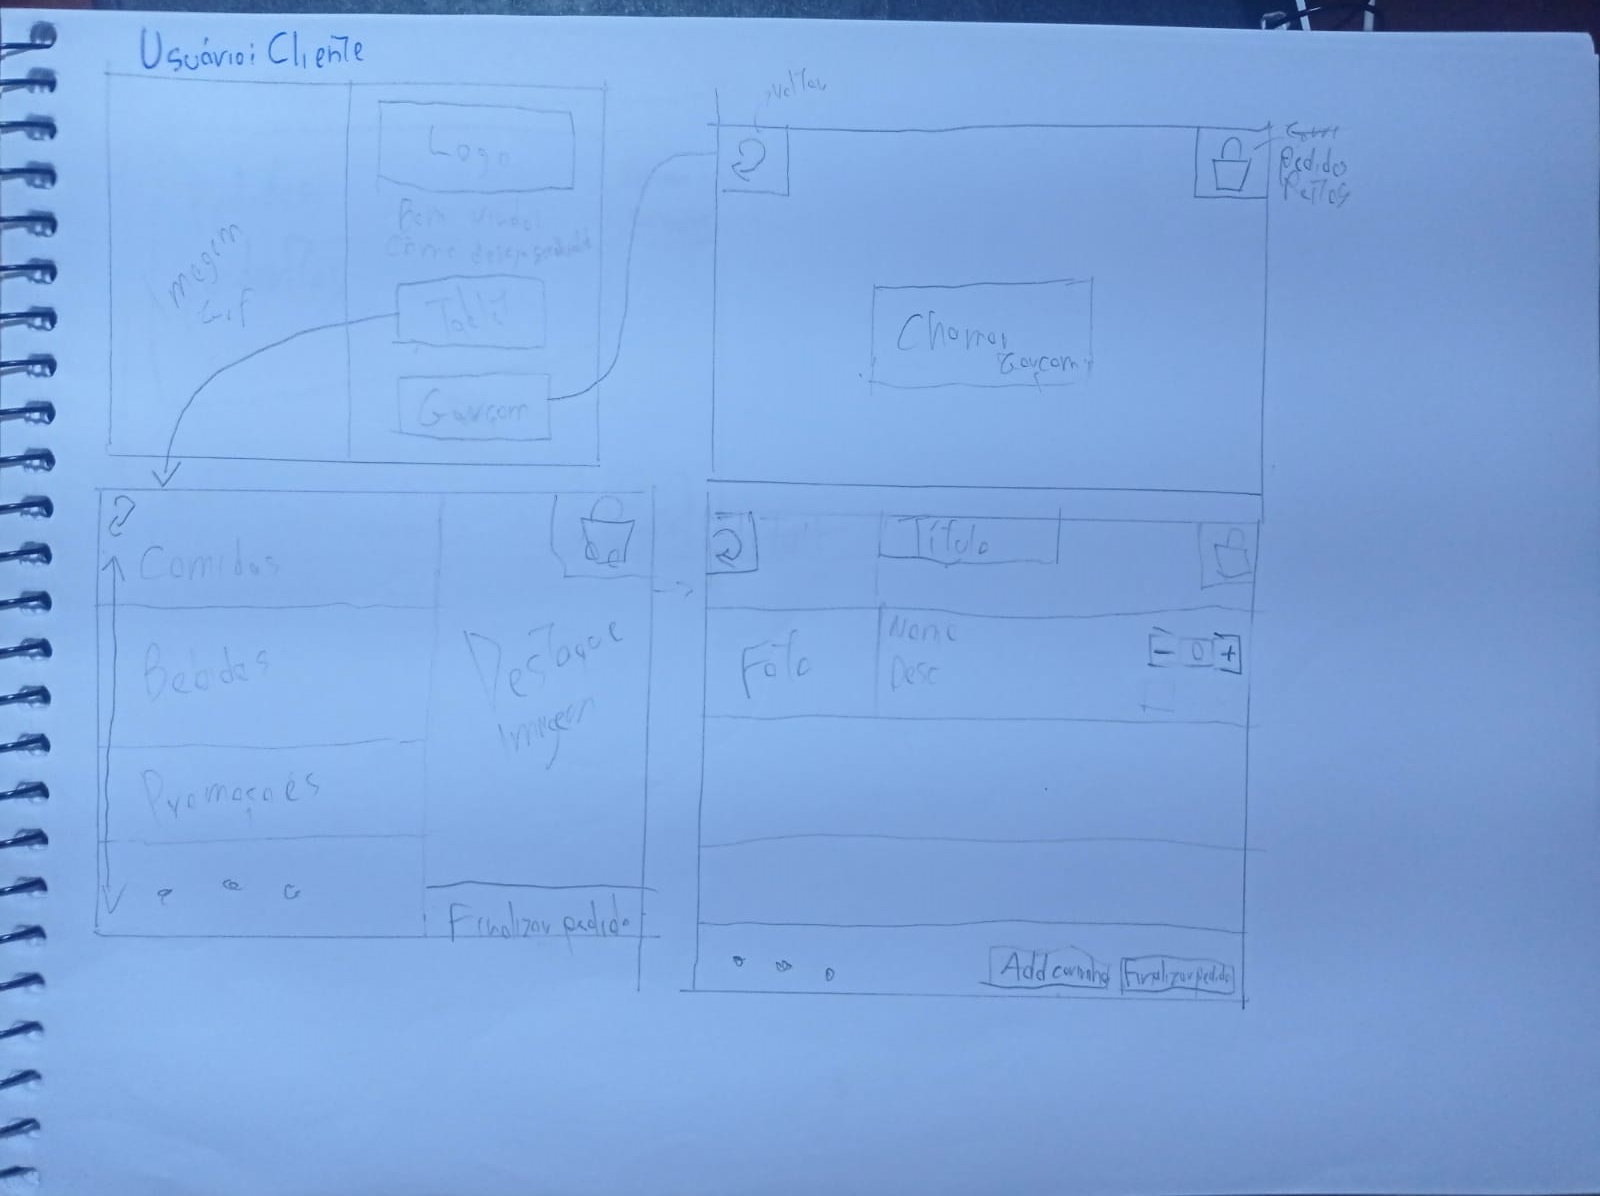 Usuário: Cliente
Logo
Bem vindo!
Como deseja
Imagem
Gif
Tablet
Garçom
Voltar
Pedidos
Feitos
Chamar
Garçom
Comidas
Bebidas
Promoções
Destaque
Imagem
Finalizar pedido
Título
Foto
Nome
Desc
- 0 +
Add carrinho
Finalizar pedido